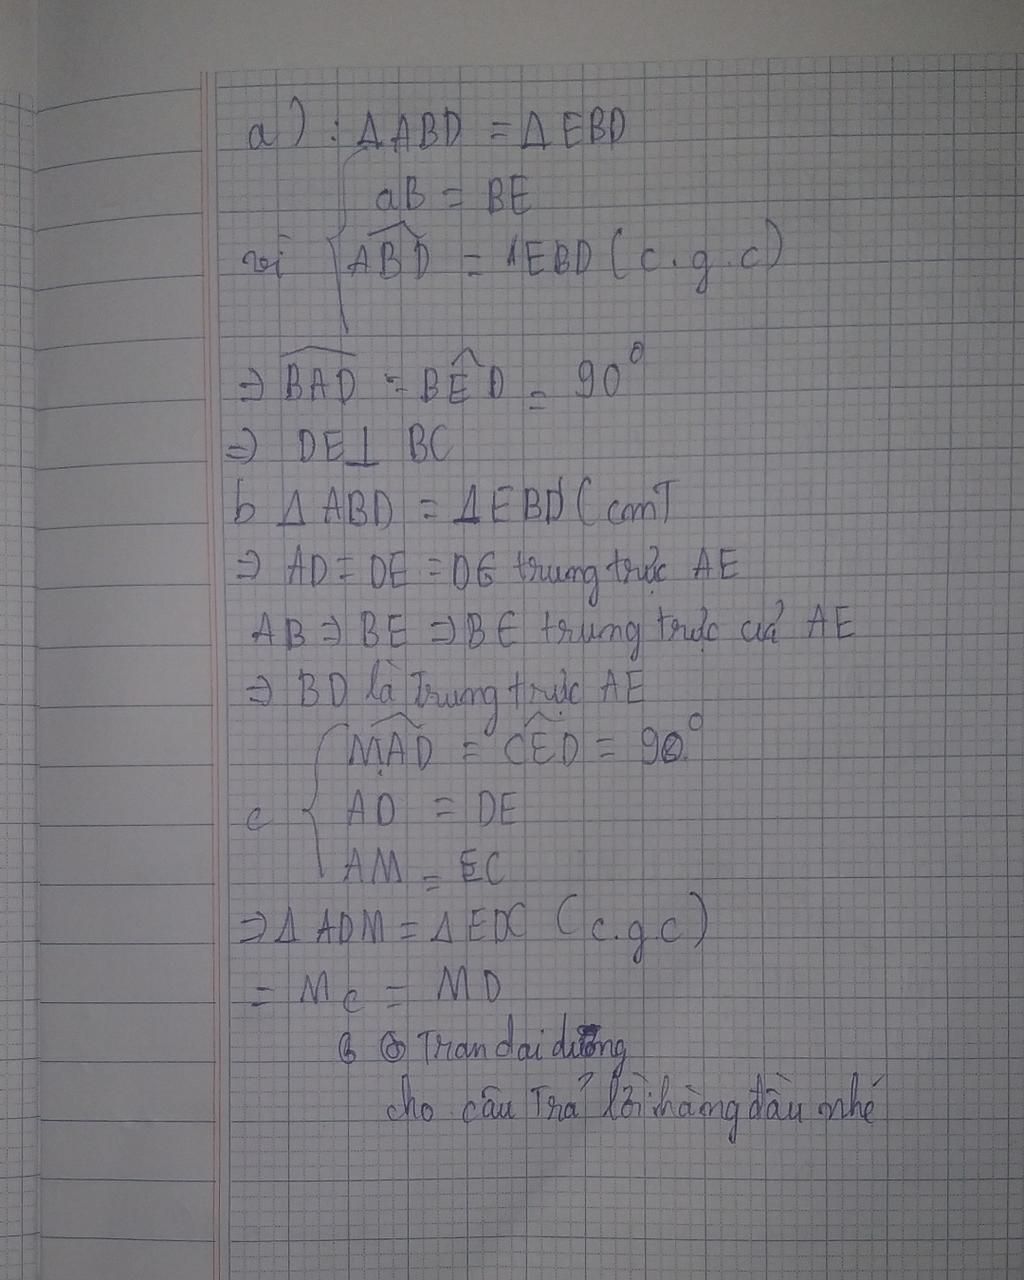 a) : Δ ABD = Δ EBD
aB = BE
với { ABD = ΔEBD (c.g.c)
=> BAD = BED = 90°
=> DE⊥ BC
b Δ ABD = Δ EBD (cmT
=> AD = DE = DE trung trực AE
AB => BE => BE trung trực củả AE
=> BD là Trung trực AE
MAD = CED = 90°
c { AD = DE
AM = EC
=> Δ ADM = Δ EDC (c.g.c)
= Mc = MD
Tran dai dương
cho câu Trả lời hàng đầu nhé